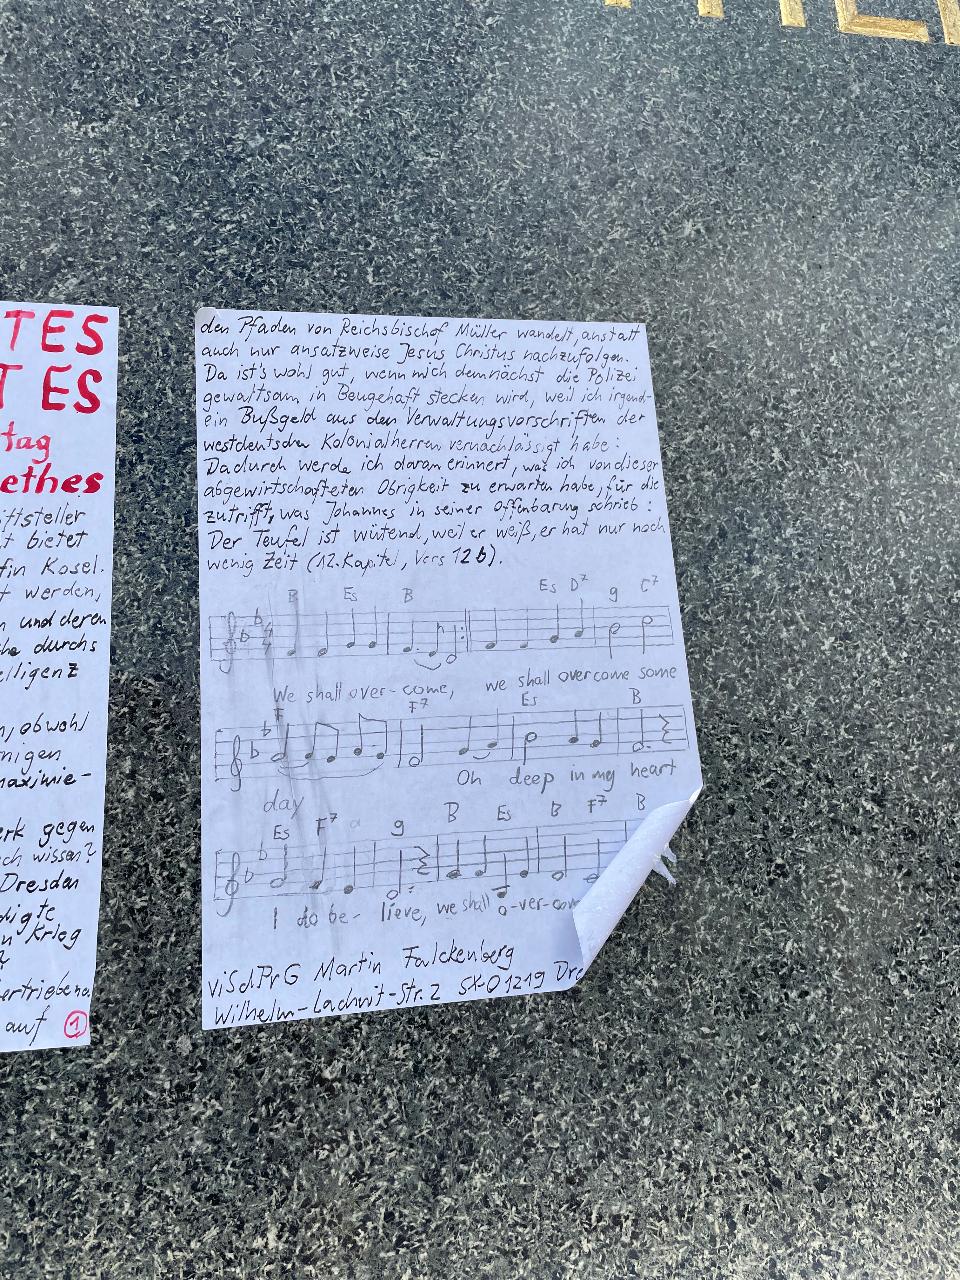 TES
T ES
tag
ethes
iftsteller
t bietet
fin Kosel.
t werden,
n und deren
che durchs
elligenz
n, obwohl
nigen
maximie-
erk gegen
ch wissen?
Dresden
digte
n Krieg
?
ertriebene
auf 1
den Pfaden von Reichsbischof Müller wandelt, anstatt
auch nur ansatzweise Jesus Christus nachzufolgen.
Da ist's wohl gut, wenn mich demnächst die Polizei
gewaltsam in Beugehaft stecken wird, weil ich irgend-
ein Bußgeld aus den Verwaltungsvorschriften der
westdeutschen Kolonialherren vernachlässigt habe:
Dadurch werde ich daran erinnert, was ich von dieser
abgewirtschafteten Obrigkeit zu erwarten habe, für die
zutrifft, was Johannes in seiner Offenbarung schrieb:
Der Teufel ist wütend, weil er weiß, er hat nur noch
wenig Zeit (12. Kapitel, Vers 12b).
B Es B Es D7 g C7
We shall over-come, we shall overcome some
F F7 Es B
day Oh deep in my heart
Es F7 g B Es B F7 B
I do be- lieve, we shall o-ver-com
ViSdPrG Martin Falckenberg
Wilhelm-Lachnit-Str. 2 SX-01219 Dre